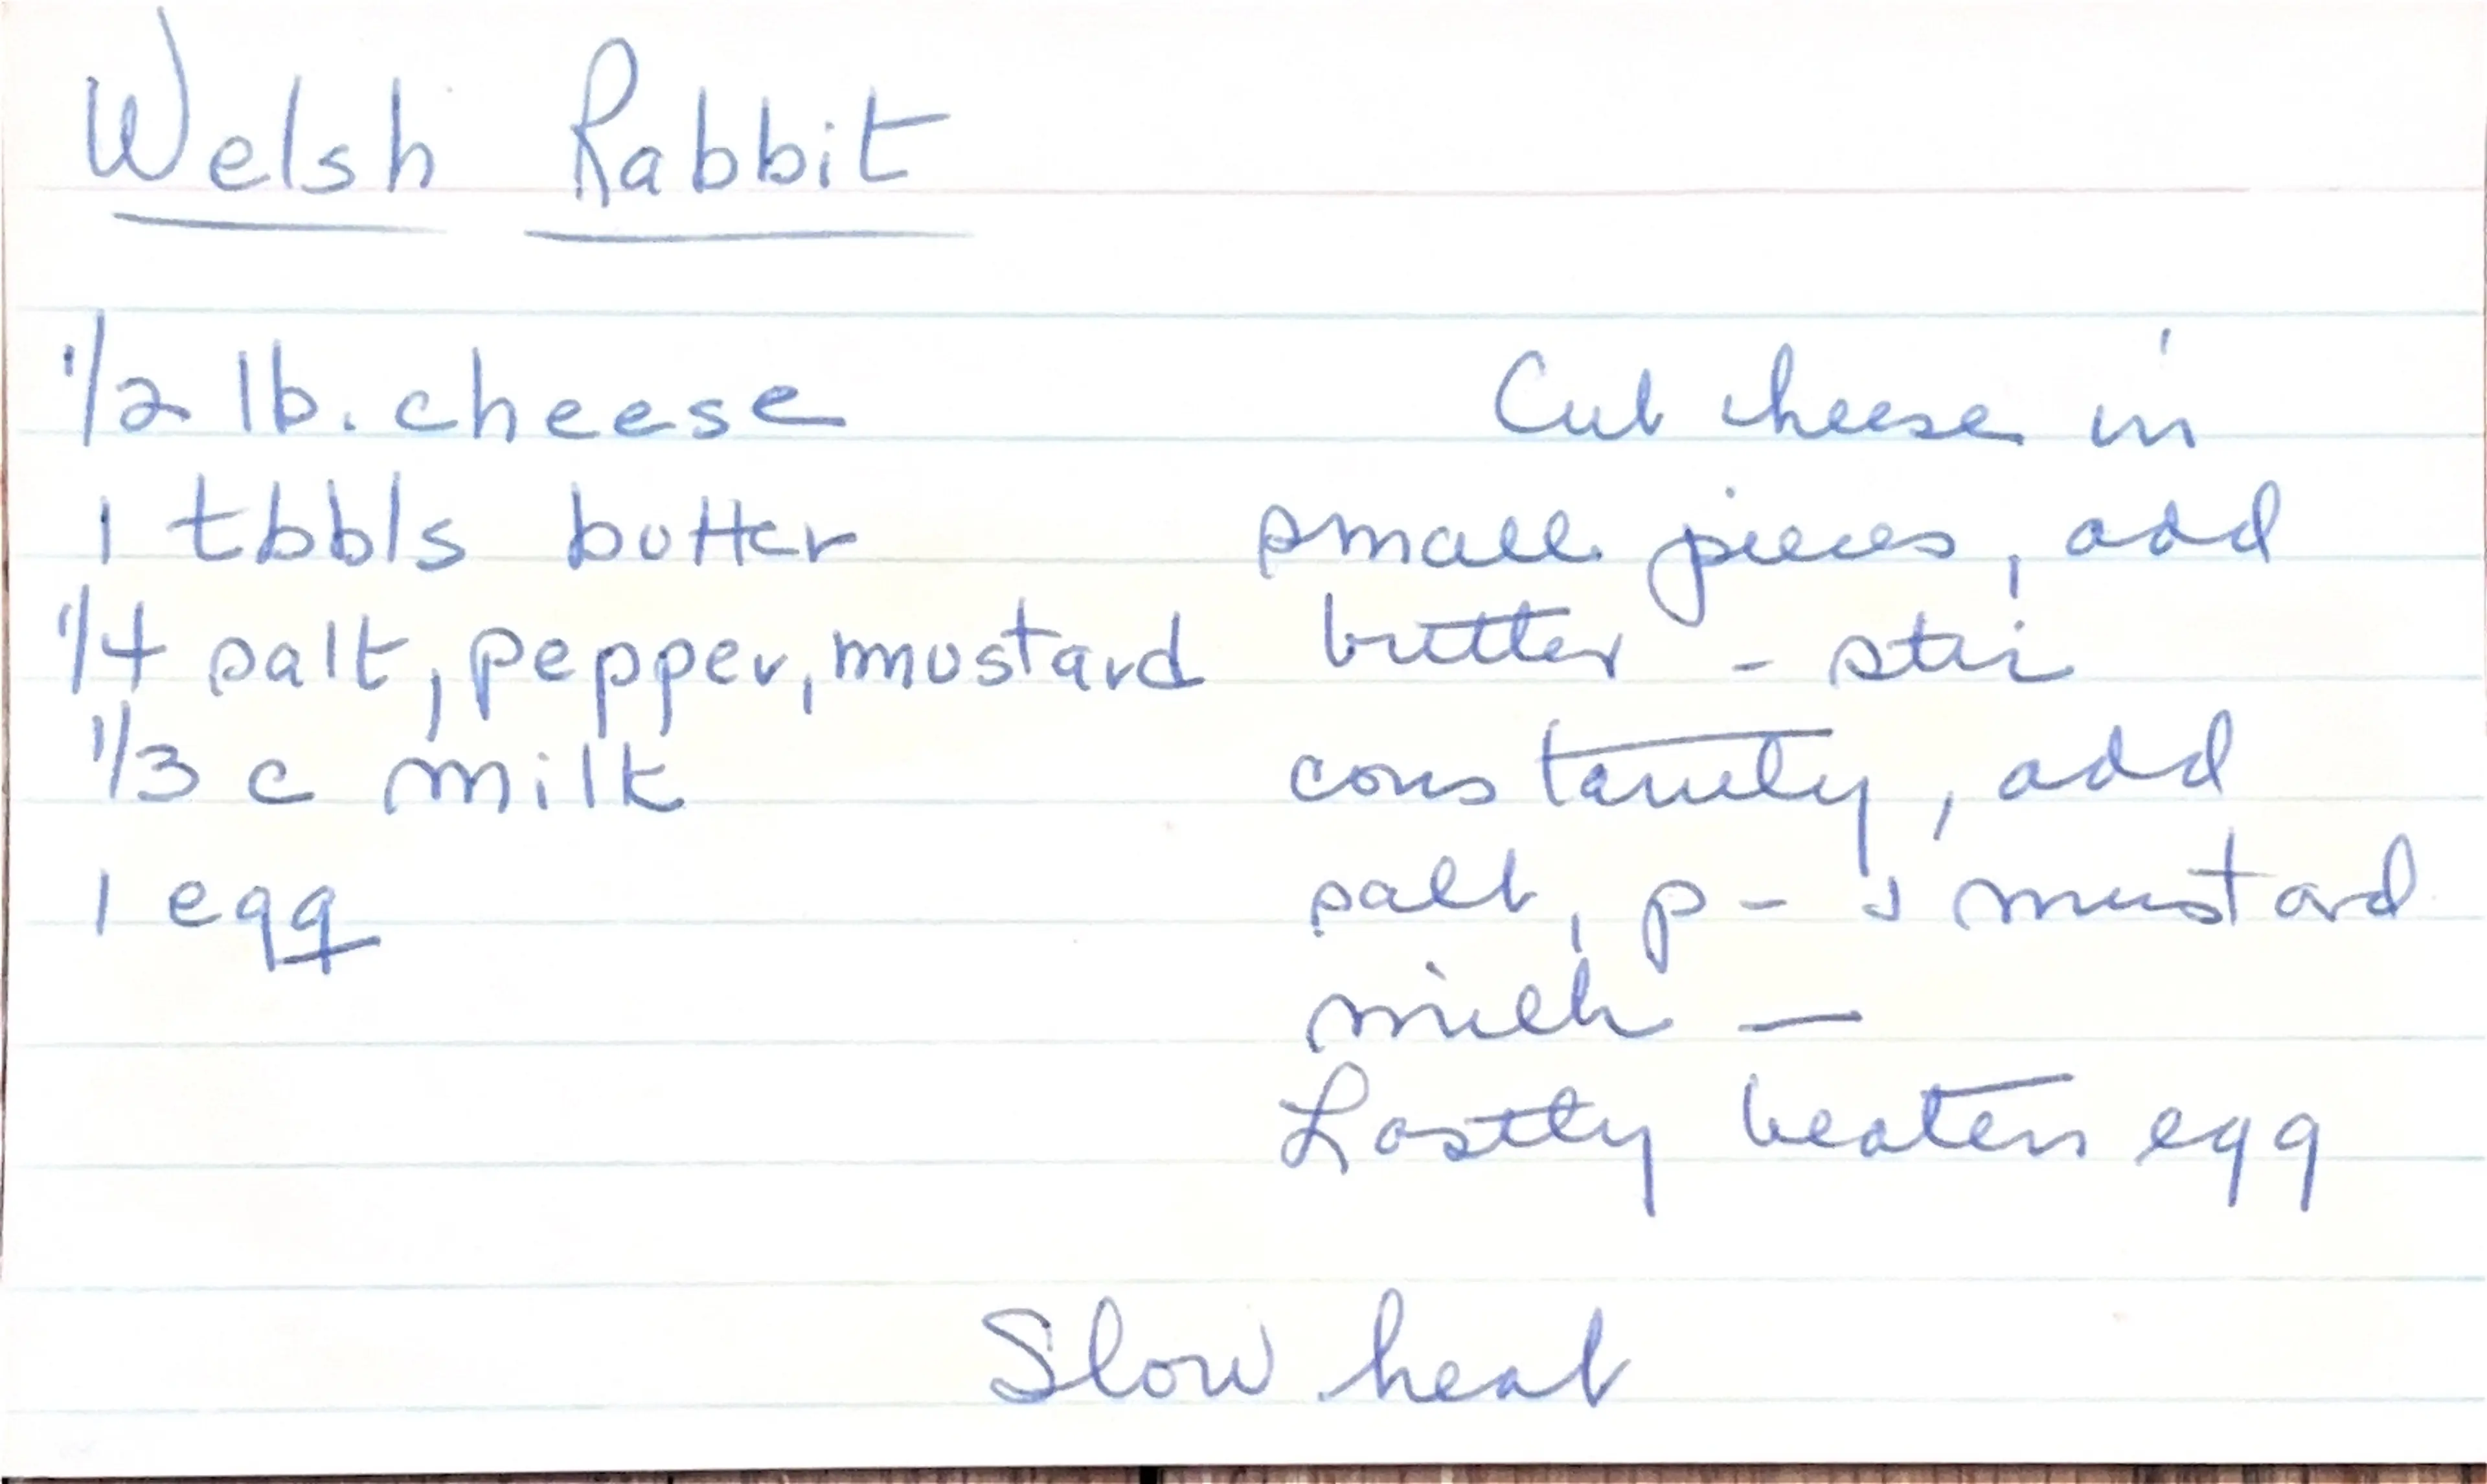 Welsh Rabbit
1/2 lb. cheese
1 tbbls butter
1/4 salt, pepper, mustard
1/3 c milk
1 egg
Cut cheese in
small pieces, add
butter - stir
constantly, add
salt, p - & mustard
milk —
Lastly beaten egg
Slow heat